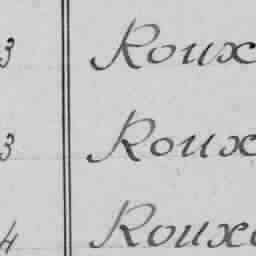 3 Roux
3 Roux
4 Roux